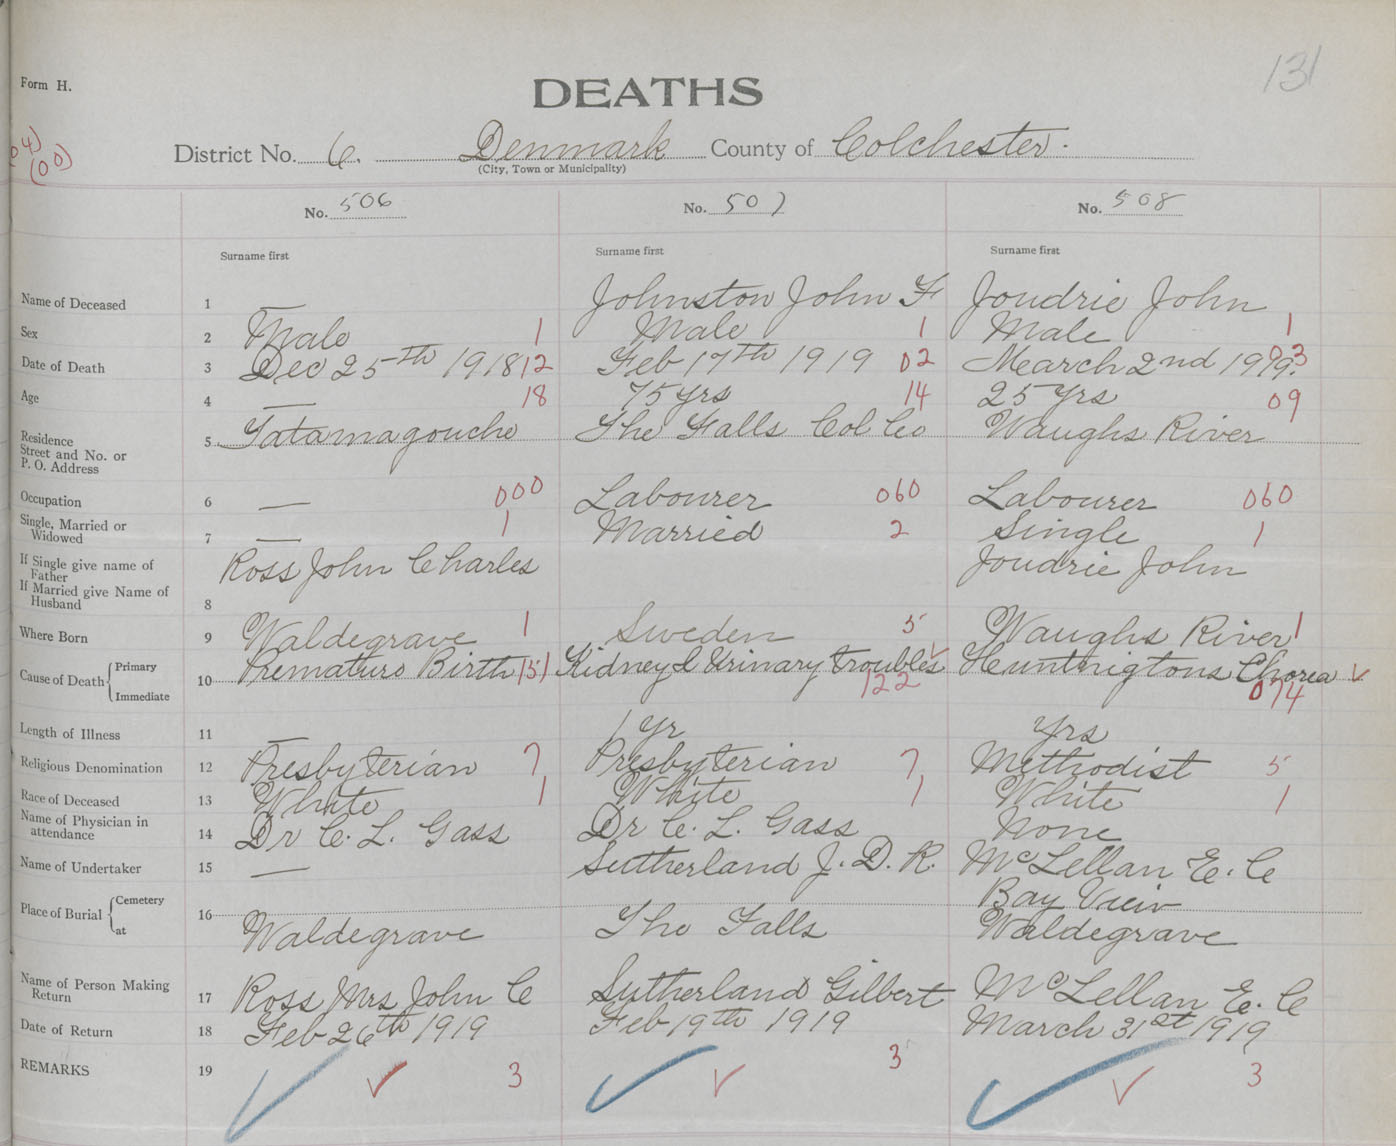 131
Form H.
DEATHS
04)
(00)
District No. 6. Denmark County of Colchester.
(City, Town or Municipality)
No. 506 No. 507 No. 508
Surname first Surname first Surname first
Name of Deceased 1 — Johnston John F Joudrie John
Sex 2 Male 1 Male 1 Male 1
Date of Death 3 Dec 25th 1918 12 Feb 17th 1919 02 March 2nd 1919. 03
Age 4 — 18 75 yrs 14 25 Yrs 09
Residence
Street and No. or
P. O. Address 5 Tatamagouche The Falls Col Co Waughs River
Occupation 6 — 000 Labourer 060 Labourer 060
Single, Married or
Widowed 7 — 1 Married 2 Single 1
If Single give name of
Father
If Married give Name of
Husband 8 Ross John Charles Joudrie John
Where Born 9 Waldegrave 1 Sweden 5 Waughs River 1
Cause of Death { Primary
Immediate 10 Premature Birth 151 Kidney & Urinary troubles 122 Huntnigtons Chorea 074
Length of Illness 11 — 1 yr yrs
Religious Denomination 12 Presbyterian 7 Presbyterian 7 Methodist 5
Race of Deceased 13 White 1 White 1 White 1
Name of Physician in
attendance 14 Dr C. L. Gass Dr C. L. Gass None
Name of Undertaker 15 — Sutherland J. D. R. McLellan E. C
Place of Burial { Cemetery
at 16 Waldegrave The Falls Bay View Waldegrave
Name of Person Making
Return 17 Ross Mrs John C Sutherland Gilbert McLellan E. C
Date of Return 18 Feb 26th 1919 Feb 19th 1919 March 31st 1919
REMARKS 19 3 3 3